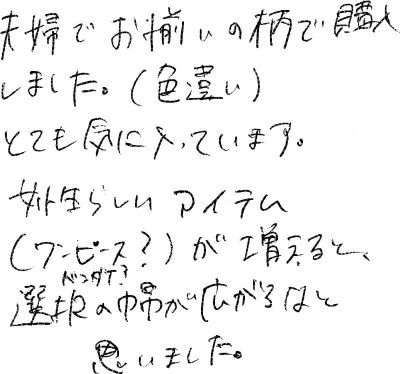 夫婦でお揃いの柄で購入
しました。(色違い)
とても気に入っています。
女性らしいアイテム
(ワンピース?)が増えると、
選択の巾が広がるなと
思いました。